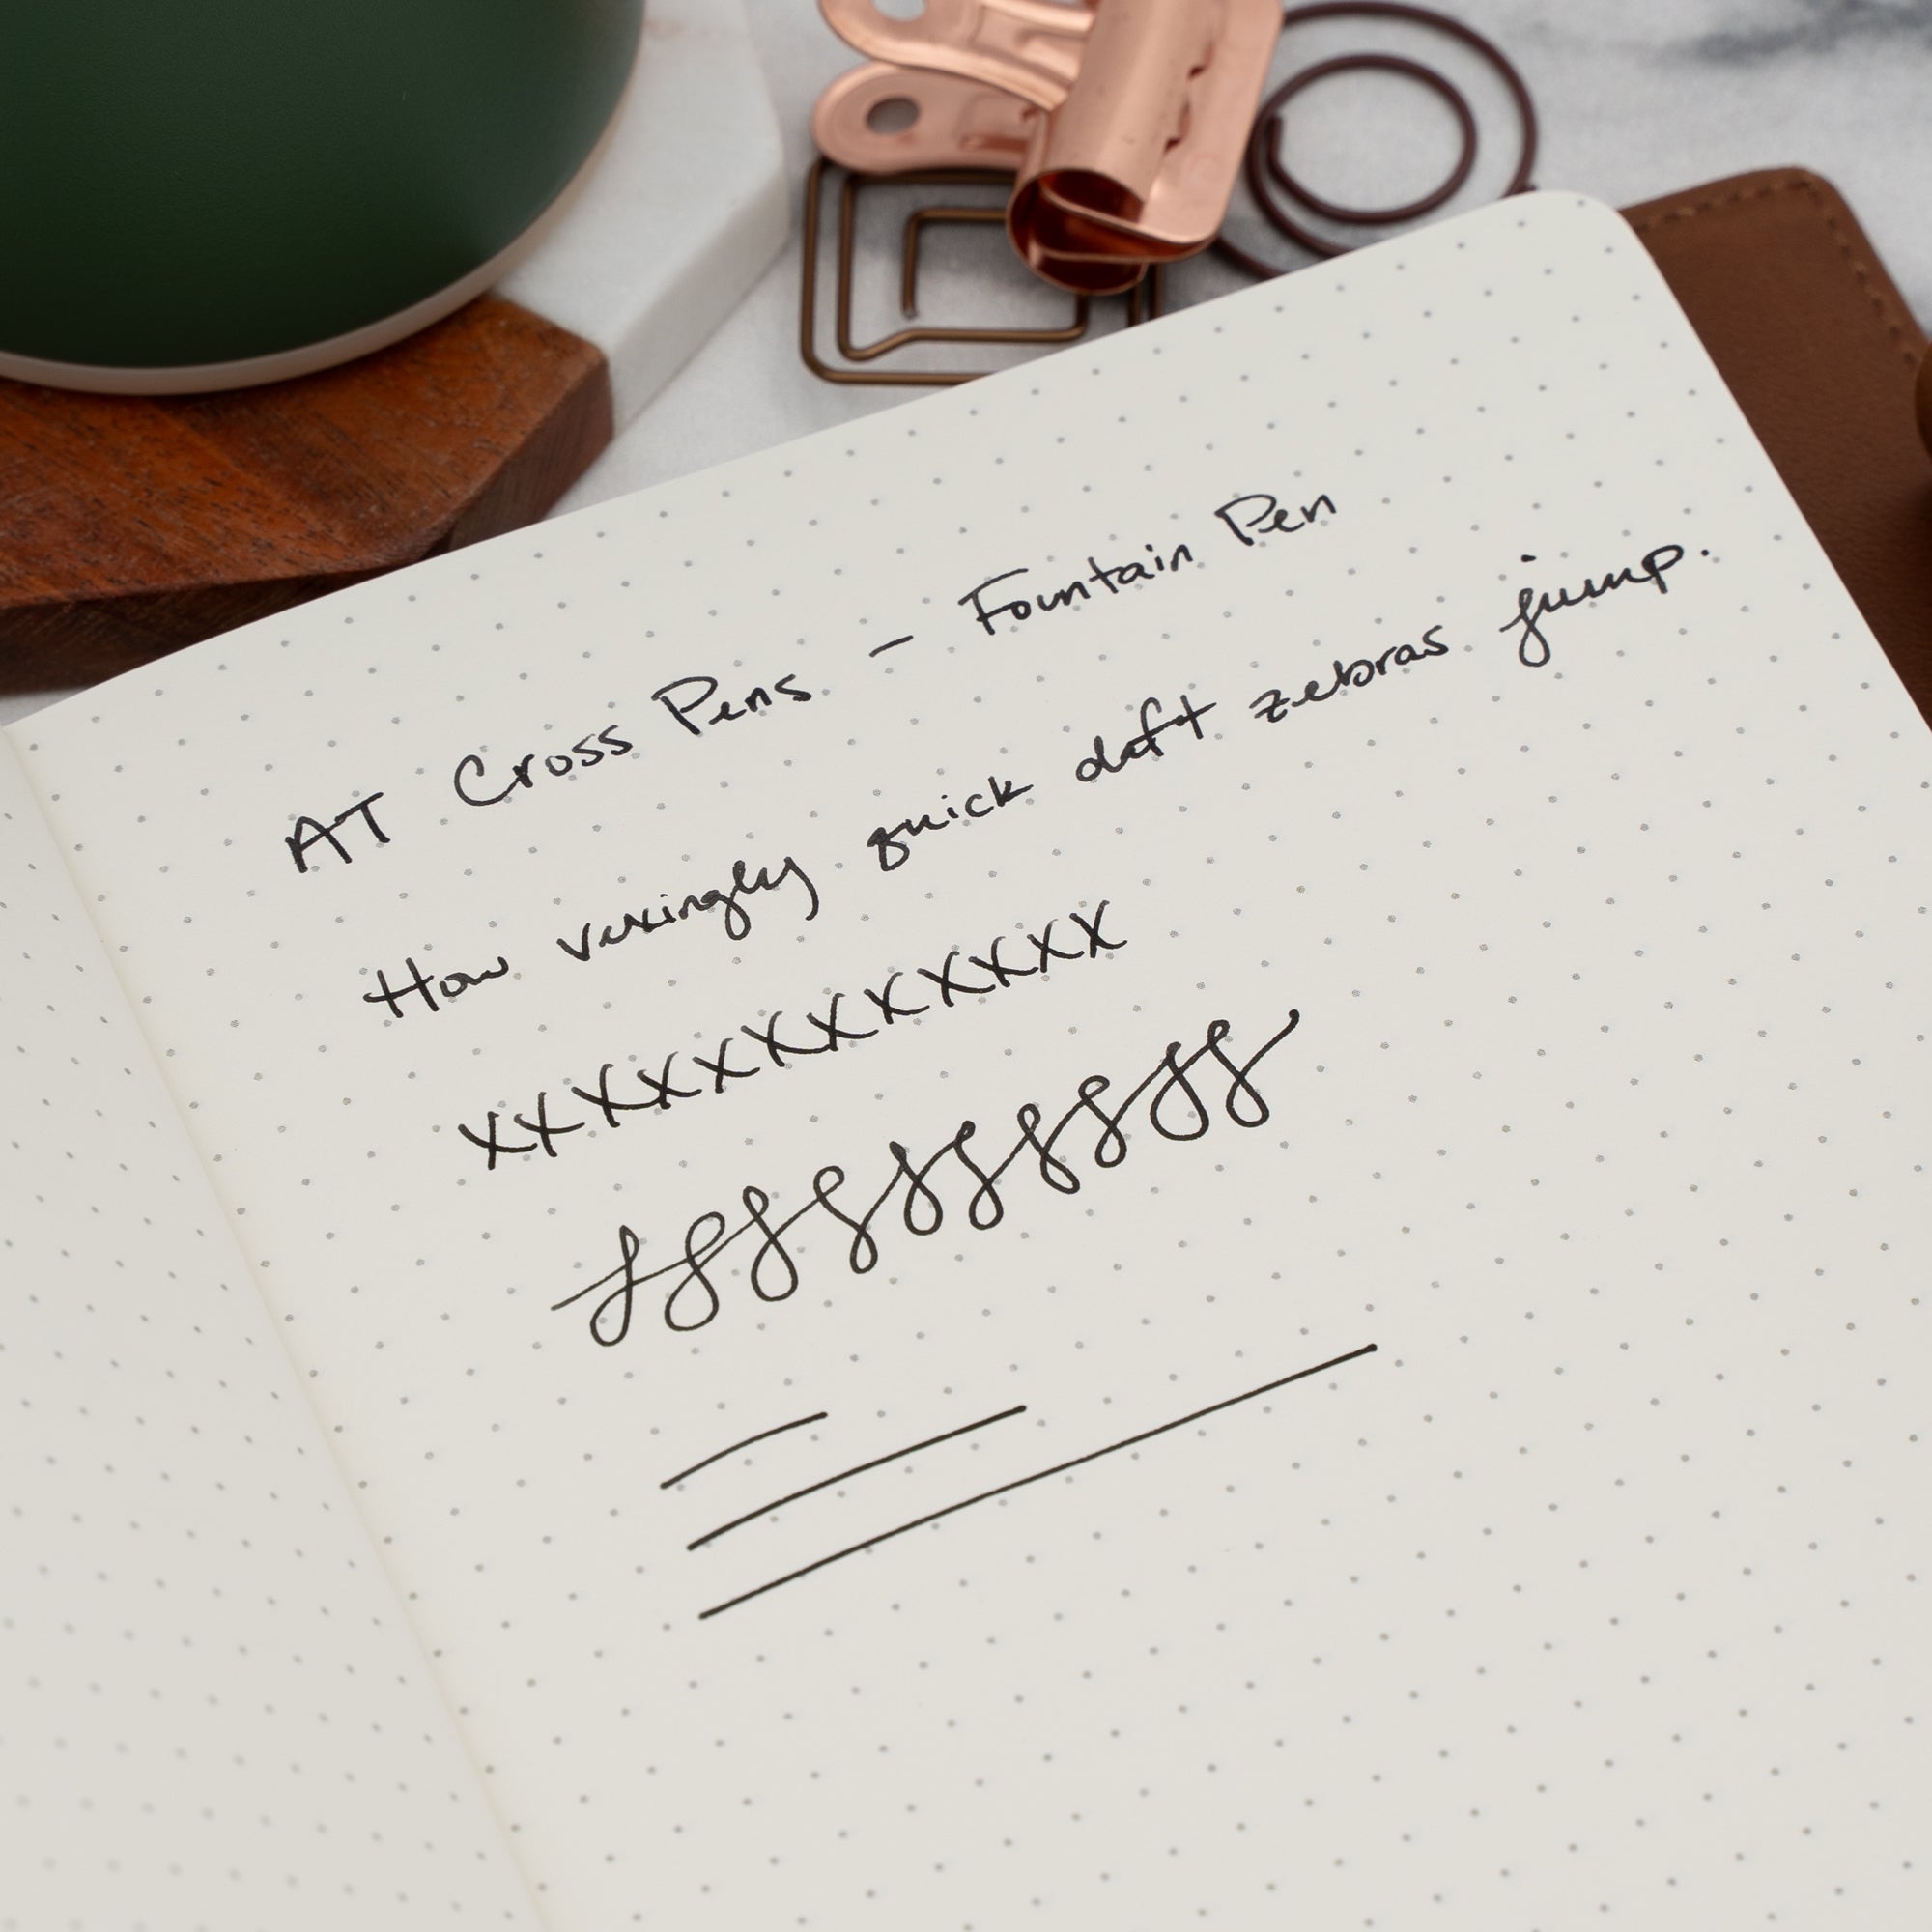 AT Cross Pens - Fountain Pen
How vexingly quick daft zebras jump.
xxxxxxxxxxx